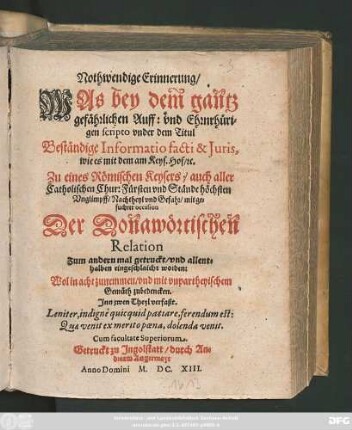 Nothwendige Erinnerung/
WAs bey dem gantz
gefährlichen Auff: vnd
gen scripto vnder dem Titul
Beständige Informatio facti & Juris,
wie es mit dem am Keys. Hof/ꝛc.
Zu eines Römischen Keysers/ auch aller
Catholischen Chur: Fürsten vnd Stände höchsten
Vnglimpff/ Nachtheyl vnd Gefahr/ mit ge-
suchter occasion
Der Donawörtischen
Relation
Zum andern mal getruckt/ vnd allent-
halben eingeschlaicht worden:
Wol in acht zunemmen/ vnd mit vnpartheyischem
Gemüth zubedencken.
Inn zwen Theyl verfast.
Leniter, indignè quicquid patiare, ferendum est:
Quæ venit ex merito pœna, dolenda venit.
Cum facultate Superiorum.
Getruckt zu Ingolstatt/ durch An-
dream Angermayr
Anno Domini M. DC. XIII.